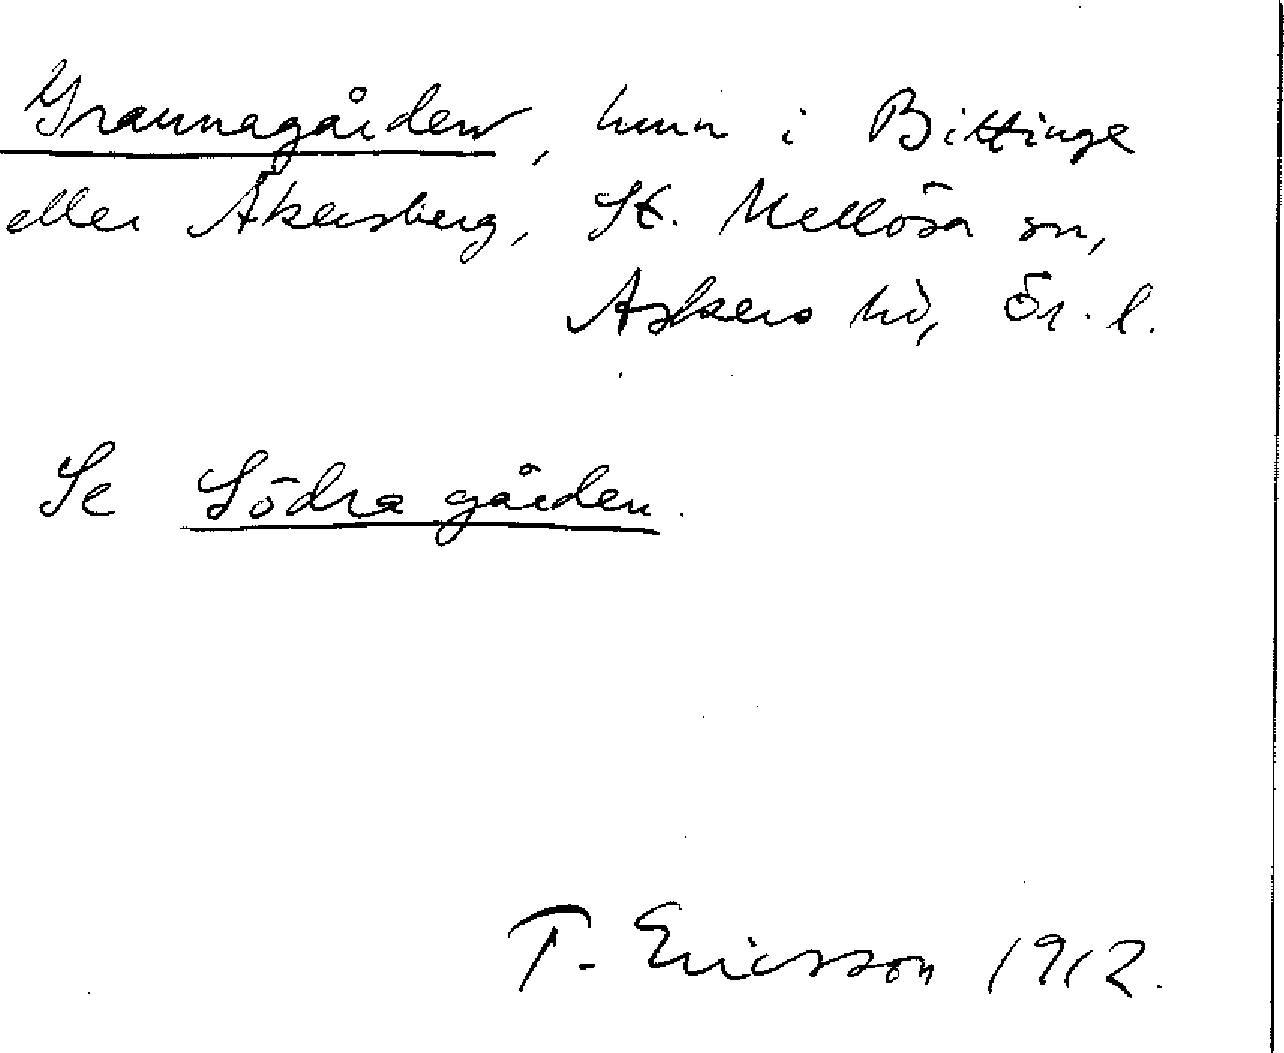 Grannagården, hmn i Bittinge
eller Åkersberg, St. Mellösa sn,
Askers hd, Ör. l.
Se Södra gården.
T. Ericsson 1912.